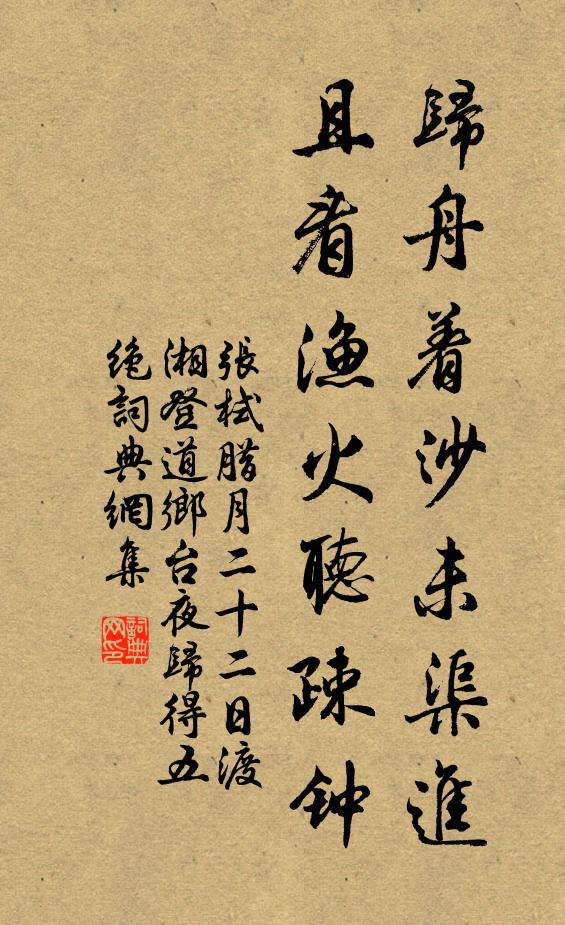 歸舟着沙未渠進
且看漁火聽疎钟
張栻腊月二十二日渡
湘登道鄉台夜歸得五
绝詞典網集
詞典
网印